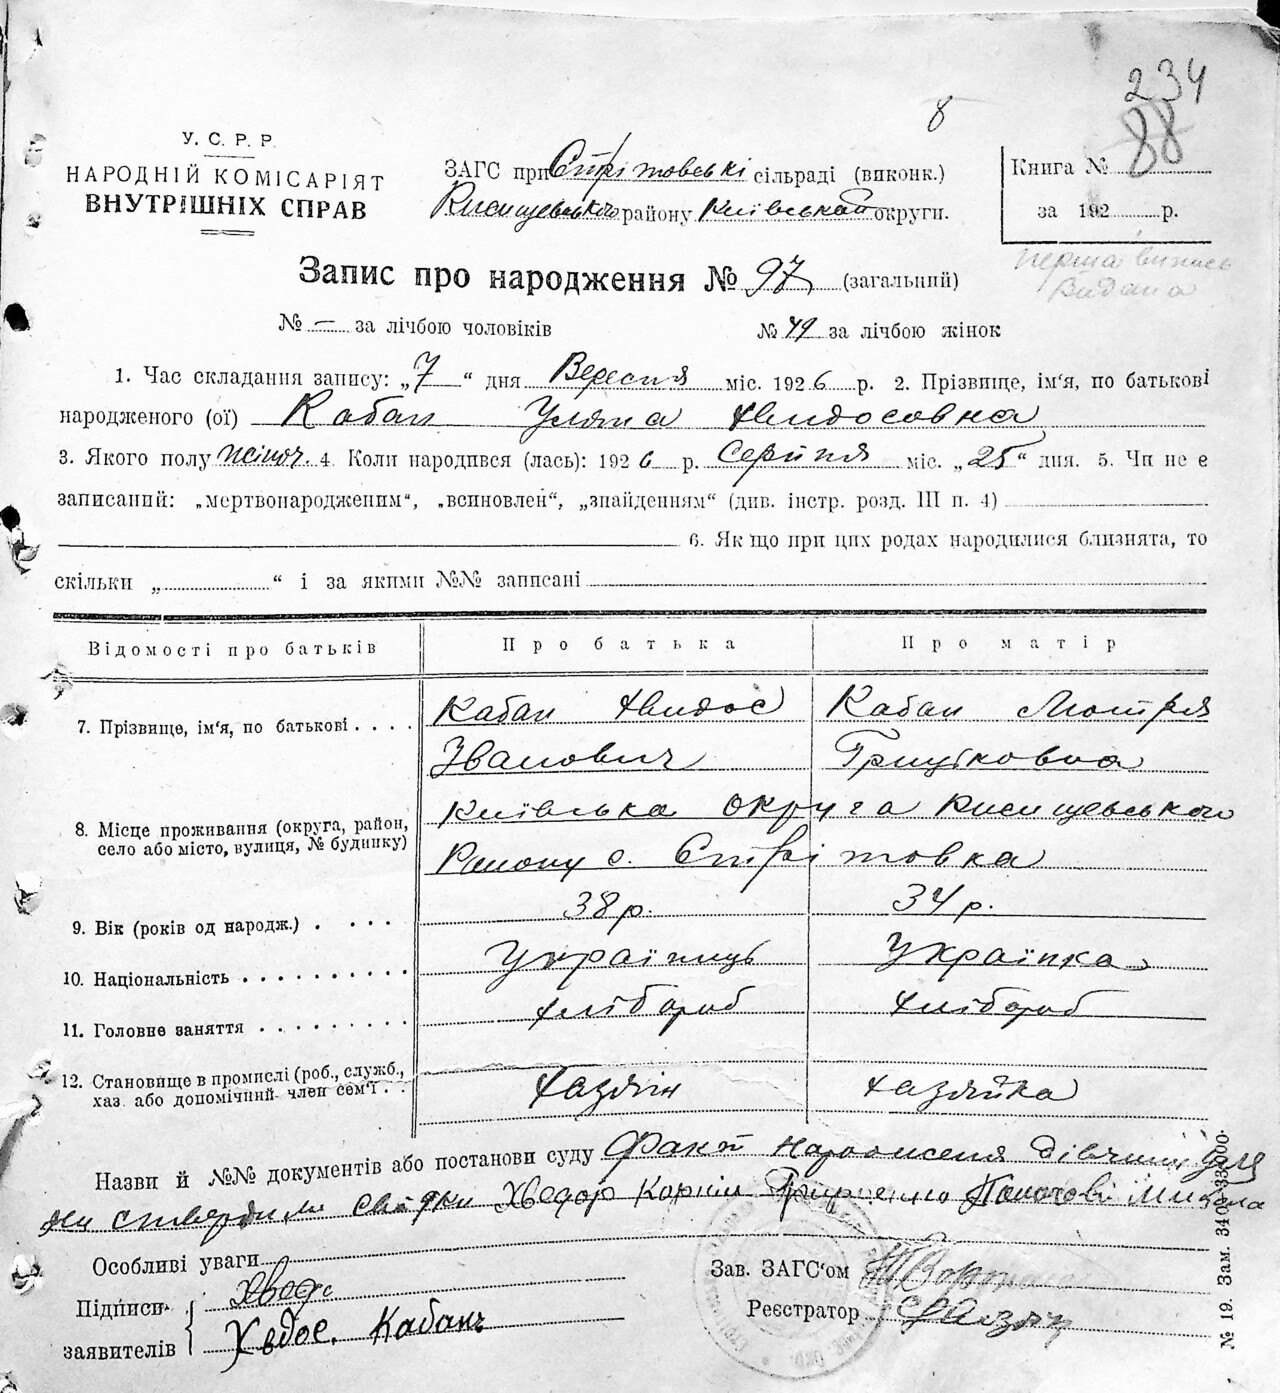 234
8
88
У. С. Р. Р.
НАРОДНІЙ КОМІСАРІЯТ
ВНУТРІШНІХ СПРАВ
ЗАГС при Стрітовські сільраді (виконк.)
району Київської округи.
Книга №
за 192 р.
перша випись
видана
Запис про народження № 97 (загальний)
№ — за лічбою чоловіків
№ 49 за лічбою жінок
1. Час складання запису: „7“ дня Вересня міс. 1926 р. 2. Прізвище, ім‘я, по батькові
народженого (ої) Кабан Уляна Хвидосовна
3. Якого полу жіноч. 4. Коли народився (лась): 1926 р. Серпня міс. „25“ дня. 5. Чи не є
записаний: „мертвонародженим“, „всиновлен“, „знайденням“ (див. інстр. розд. III п. 4)
6. Якщо при цих родах народилися близнята, то
скільки „ “ і за якими №№ записані
Відомості про батьків
Про батька
Про матір
7. Прізвище, ім‘я, по батькові . . . .
Кабан Хвидос
Іванович
Кабан Мотря
Грицковна
8. Місце проживання (округа, район,
село або місто, вулиця, № будинку)
Київська округа
Району с. Стрітовка
9. Вік (років од народж.) . . . . .
38 р.
34 р.
10. Національність . . . . . . . . . .
Українець
Українка
11. Головне заняття . . . . . . . . .
хлібороб
хлібороб
12. Становище в промислі (роб., служб.,
хаз. або допомічний член сем‘ї . .
хазяїн
хазяйка
Назви й №№ документів або постанови суду Факт народження дівчини Уля
ни ствердили свідки Хведор Корній
Особливі уваги
Підписи
заявителів
Хведс
Хвдос. Кабанъ
Зав. ЗАГС‘ом
Реєстратор
№ 19. Зам. 340